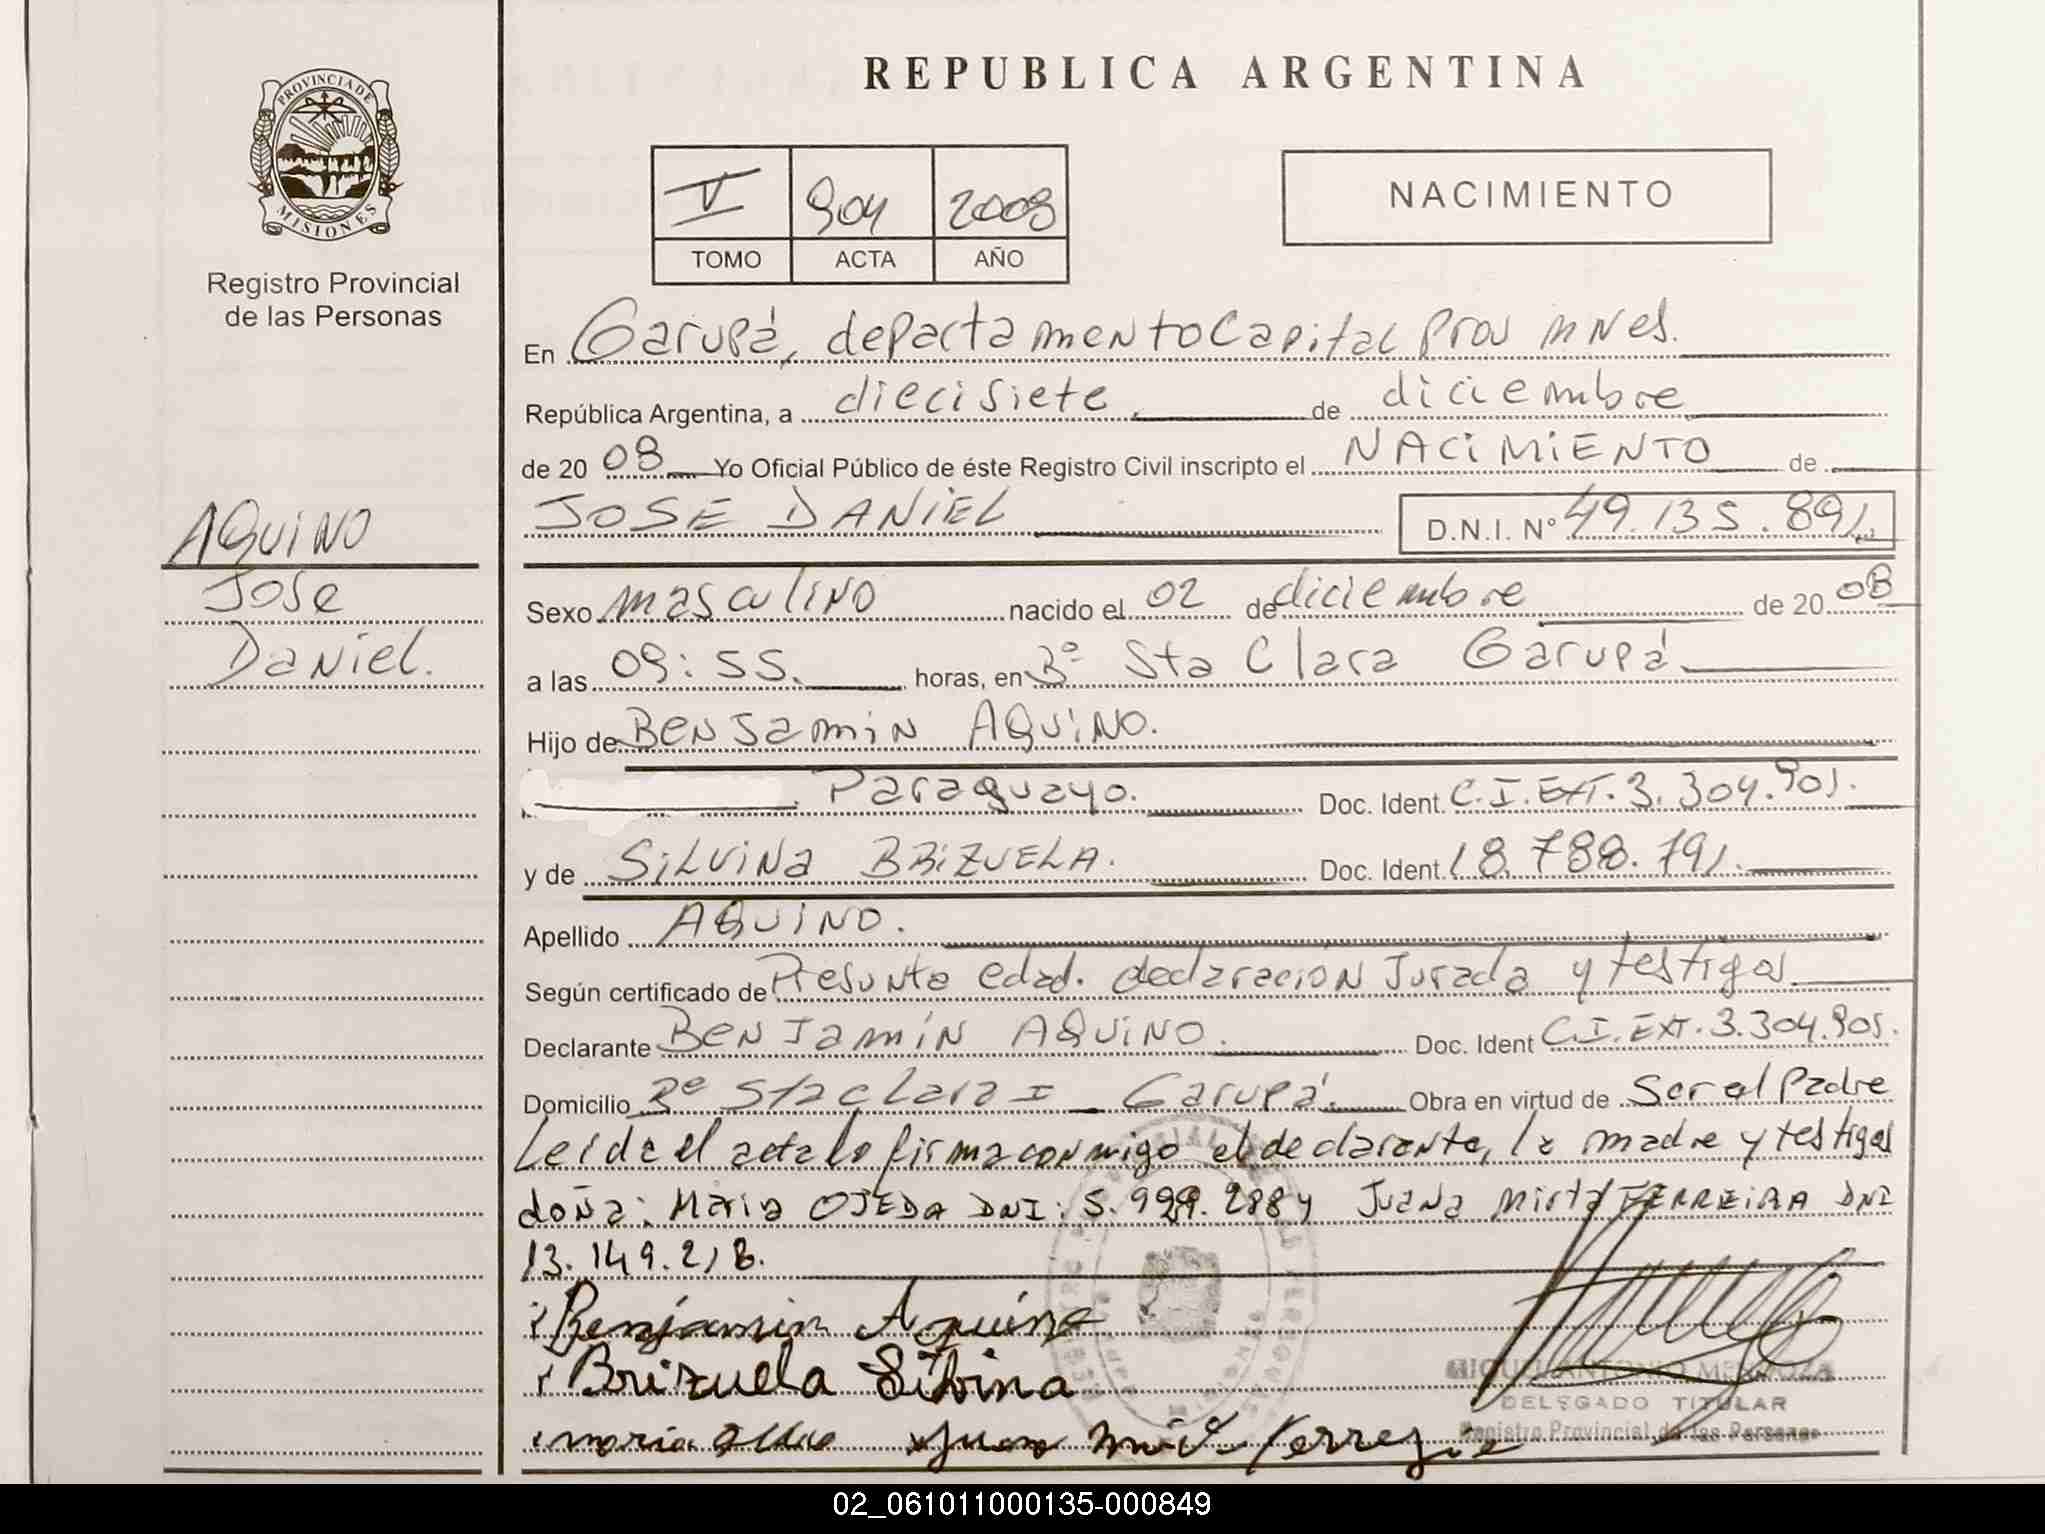 PROVINCIA DE
MISIONES
Registro Provincial
de las Personas
REPUBLICA ARGENTINA
V 904 2008
TOMO ACTA AÑO
NACIMIENTO
En Garupá, departamento Capital Prov mnes.
República Argentina, a diecisiete de diciembre
de 20 08 Yo Oficial Público de éste Registro Civil inscripto el NACIMIENTO de
JOSE DANIEL D.N.I. Nº 49.135.891
AQUINO
Jose
Daniel.
Sexo masculino nacido el 02 de diciembre de 20 08
a las 09:55. horas, en Bº Sta Clara Garupá
Hijo de Benjamin AQUINO.
Paraguayo. Doc. Ident. C.I.EXT.3.304.905.
y de SILVINA BRIZUELA. Doc. Ident. 18.788.791.
Apellido AQUINO.
Según certificado de Presunta edad. declaración Jurada y testigos
Declarante Benjamín AQUINO. Doc. Ident C.I.EXT.3.304.905.
Domicilio Bº Sta clara I - Garupá. Obra en virtud de Ser el Padre
Leida el acta la firma conmigo el declarante, la madre y testigos
doña: Maria OJEDA DNI: 5.929.288 y Juana Mirta FERREIRA DNI
13.149.218.
Benjamin Aquino
Brizuela Silvina
maria Juana Mirta Ferreyra
MIGUEL ANTONIO MENDOZA
DELEGADO TITULAR
Registro Provincial de las Personas
02_061011000135-000849